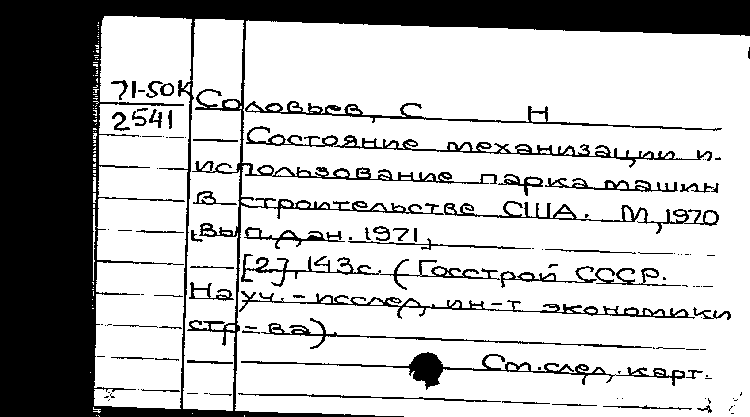 71-50К
2541
Соловьев, С Н
Состояние механизации и
использование парка машин
в строительстве США. М, 1970
[вып. дан. 1971],
[2], 143с. (Госстрой СССР.
Науч.-исслед. ин-т экономики
стр-ва).
См. след. карт.